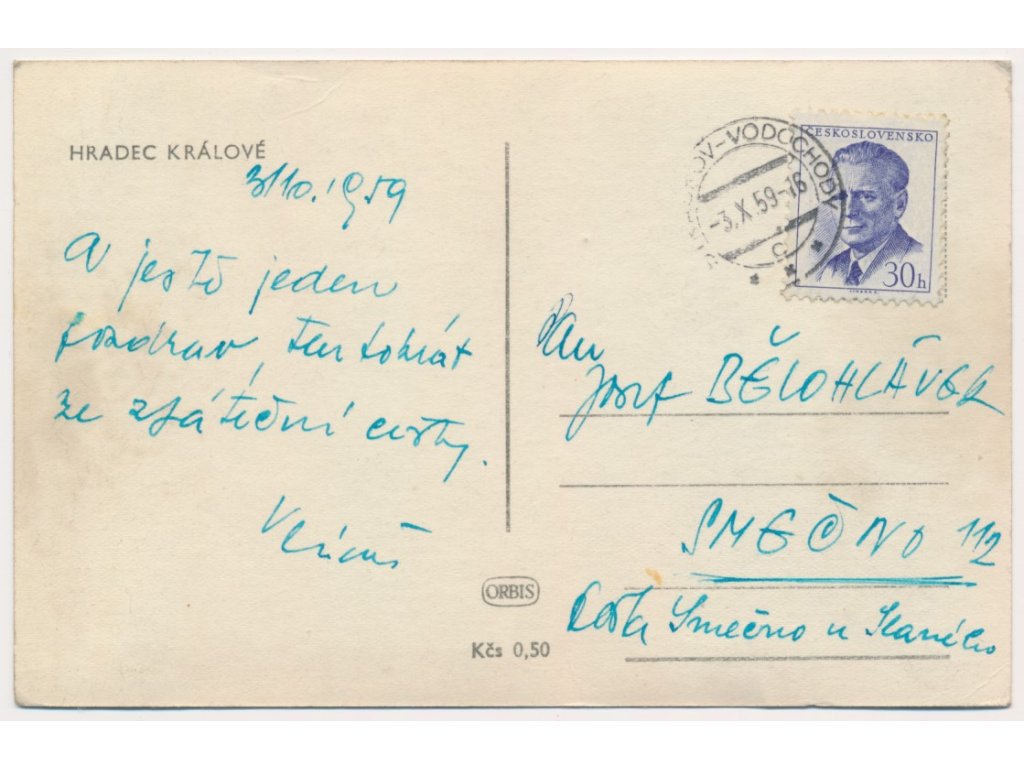 HRADEC KRÁLOVÉ
3/10. 1959
A ještě jeden
pozdrav, tentokrát
ze zpáteční cesty.
ORBIS
Kčs 0,50
ČESKOSLOVENSKO
30h
OV-VODOCHODY
-3.X.59-16
C
Pan
Josef BĚLOHLÁVEK
SMEČNO 112
Pošta Smečno u Slaného